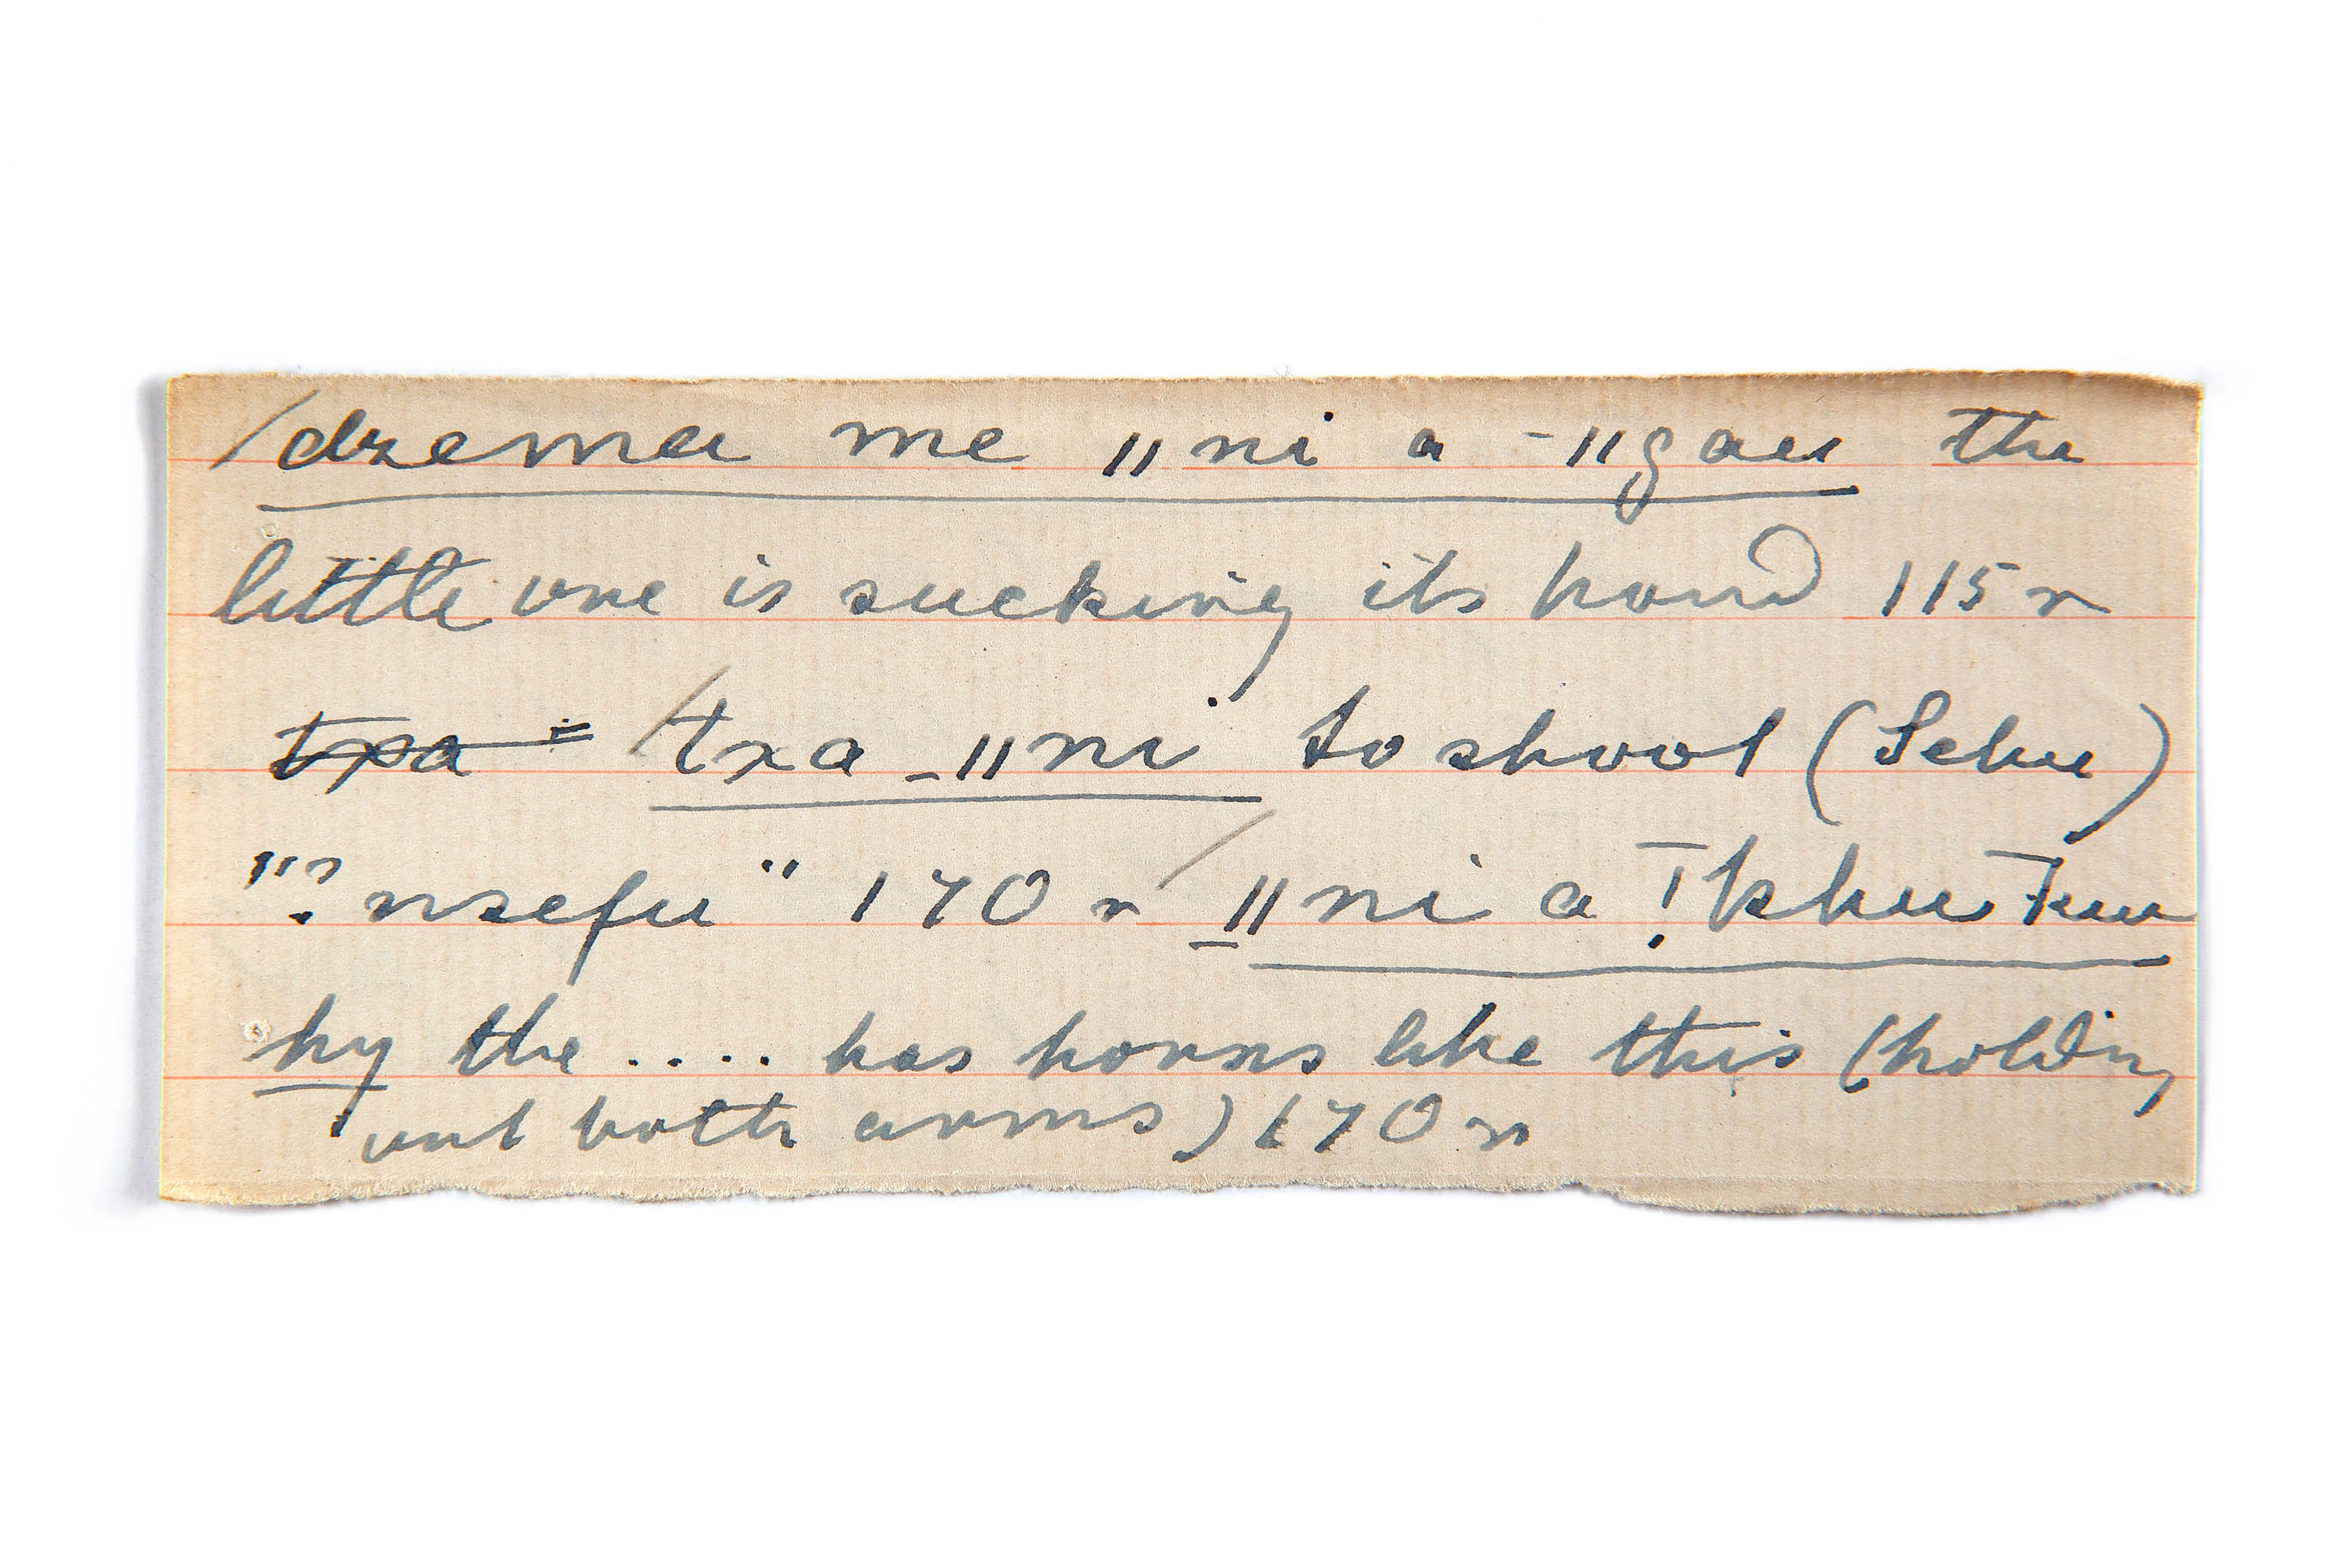 /dzema me ǁni a -ǁgau the
little one is sucking its hand 115 r
txa = /txa _ǁni to shoot (Schu)
"? nsefu" 170 r /_ǁni a ꞌkhu
hy the .... has horns like this (holding
out both arms) 170 r